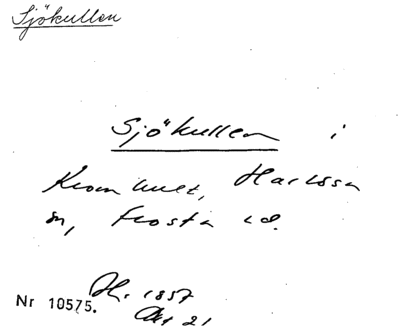 Sjökullen
Sjökullen i
Kvomhult, Harlösa
sn, Frosta hd.
Nr 10575. Hr. 1857
Akt 21